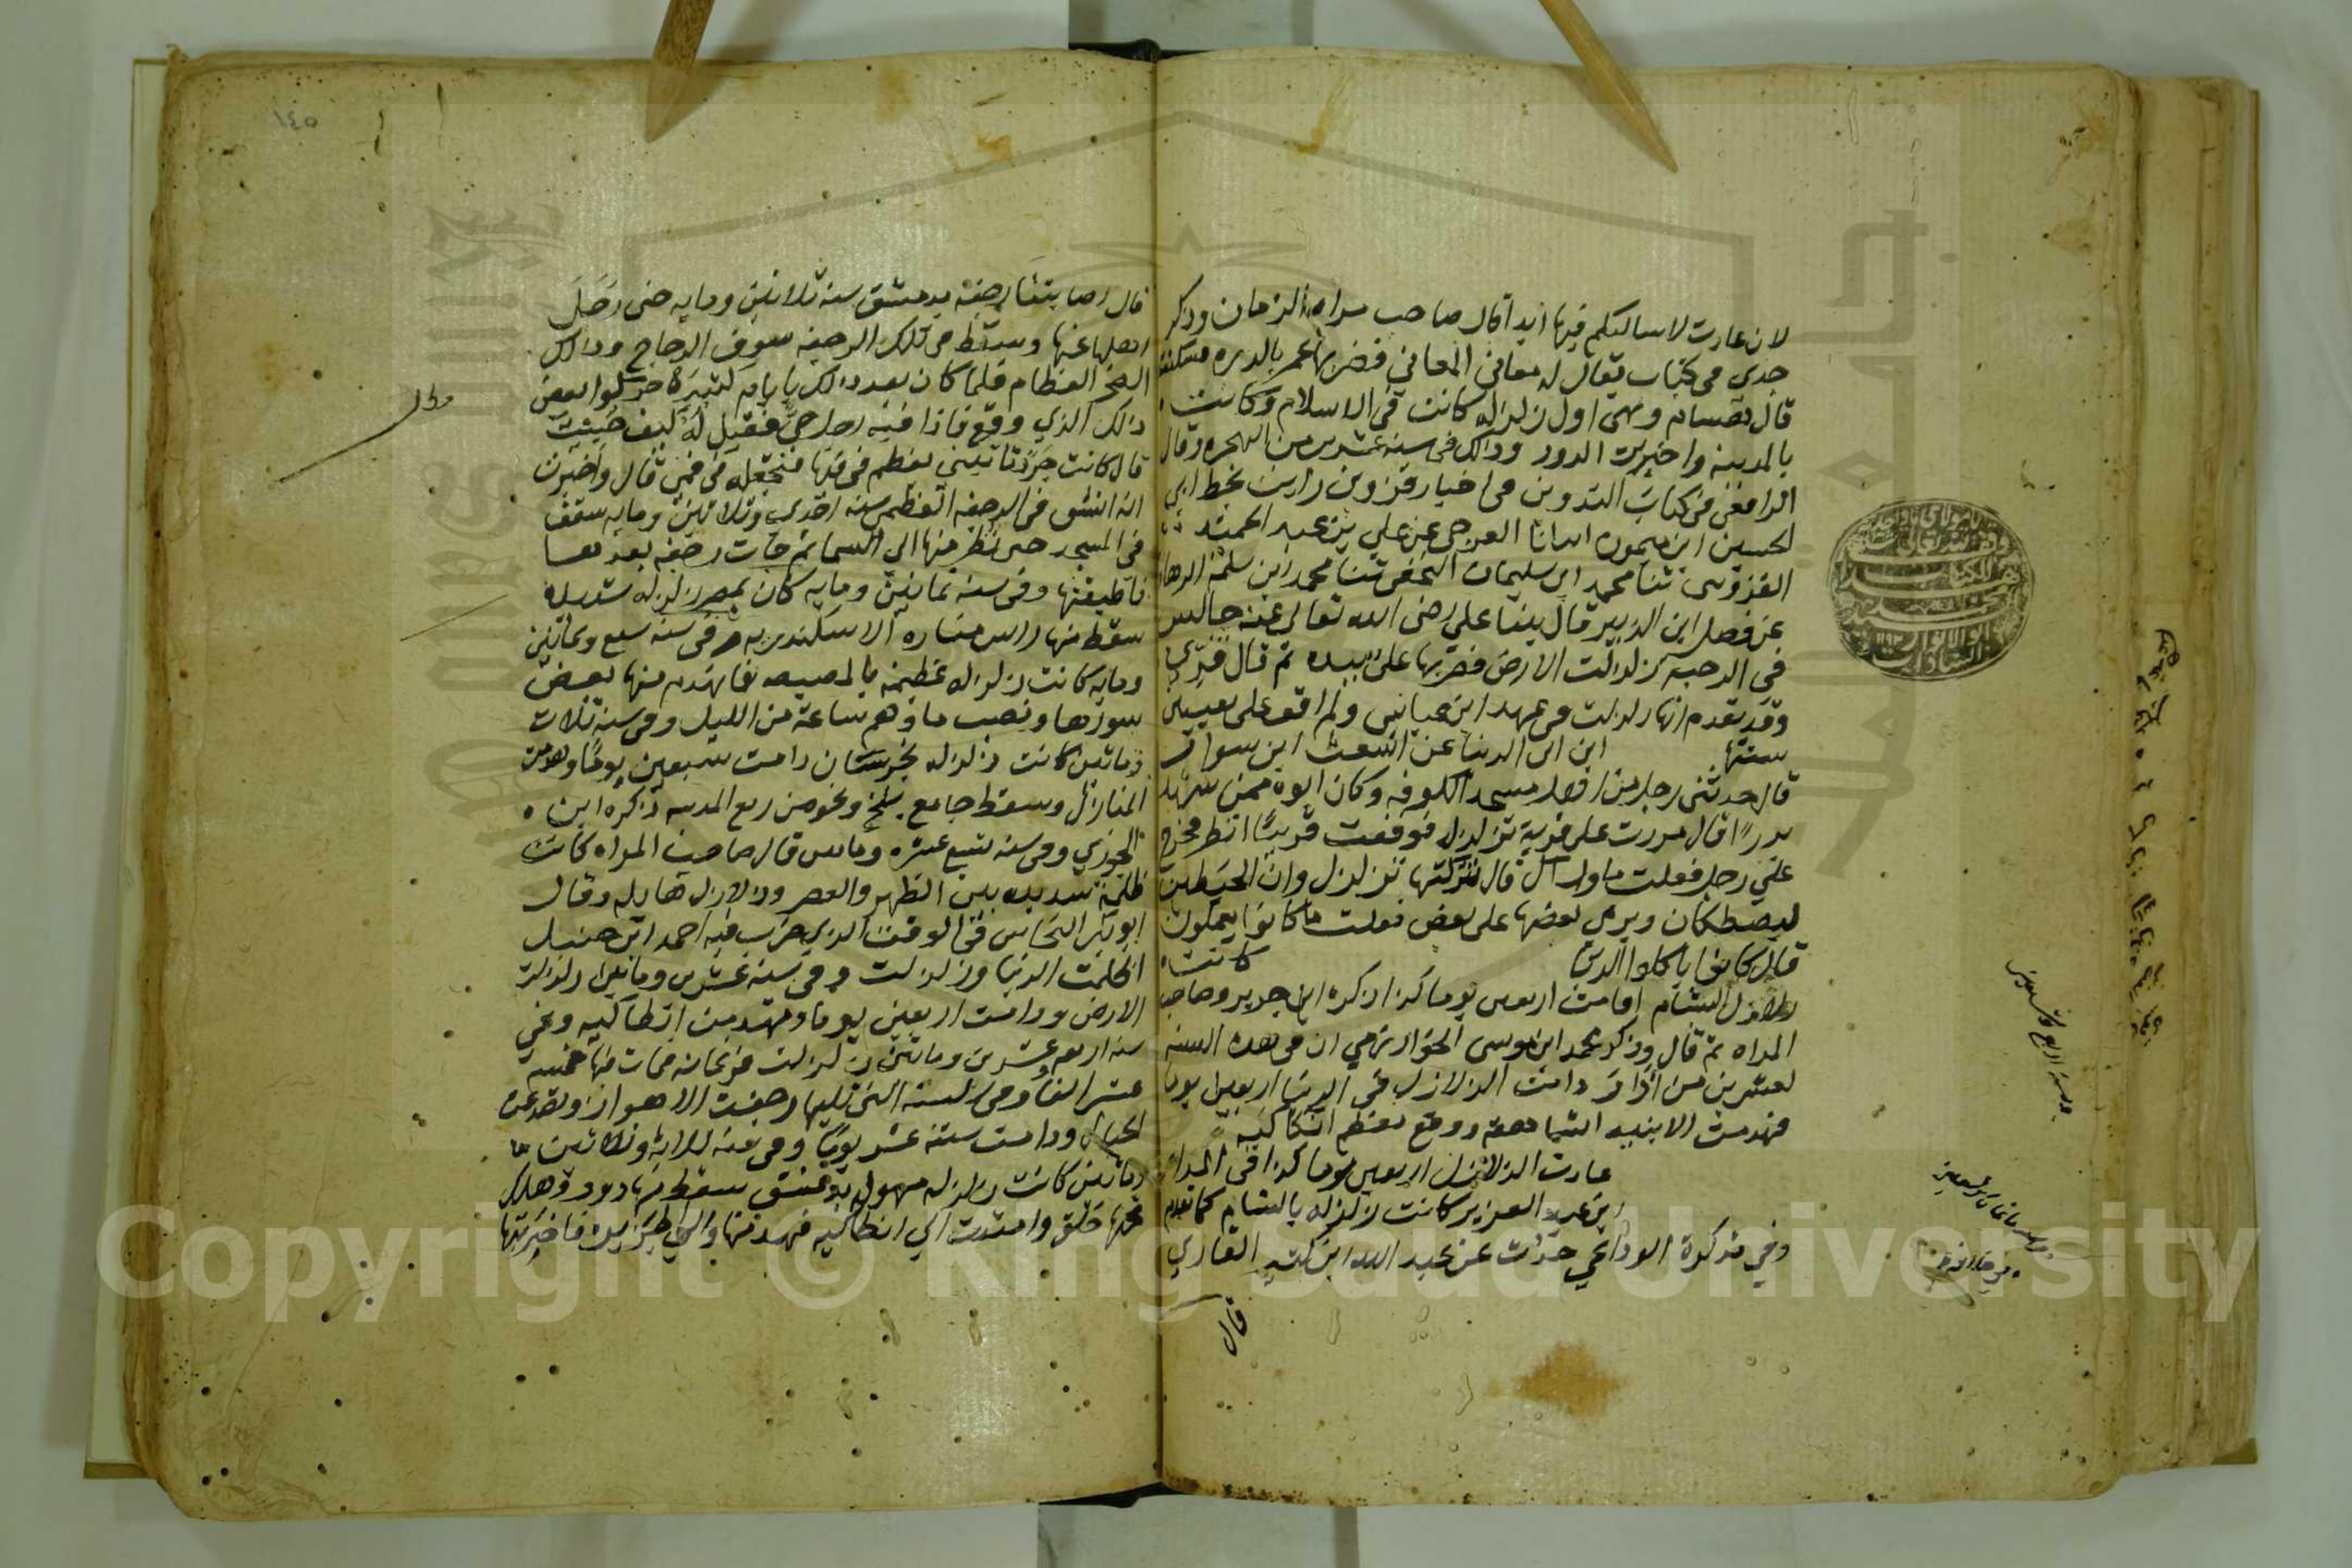 لان عادت لا ساكنكم فيها ابدا قال صاحب مراه الزمان وذكر
جدي في كتاب يقال له معاني المعاني فضربها عمر بالدره فسكنت
قال بعضهم وهي اول زلزله كانت في الاسلام وكانت
بالمدينه واخربت الدور وذالك في سنه عشرين من الهجره وقال
الرافعي في كتاب التدوين في اخبار قزوين رايت بخط ابي
الحسين ابن ميمون انبانا العرجي عن علي بن عبد الحميد
القزويني ثنا محمد ابن سليمان النخعي ثنا محمد ابن سلمه الرها
عن فضل ابن الزبير قال بينا علي رضي الله تعالى عنه جالس
في الرحبه زلزلت الارض فضربها علي بيده ثم قال قري
وقد تقدم انها زلزلت في عهد ابن عباس ولم اقف على تعيين
سنتها ابن ابي الدنيا عن اشعث ابن سوار
قال حدثني رجل من اهل مسجد الكوفه وكان ابوه ممن شهد
بدرا قال مررت على قرية تزلزل فوقفت قريبا انظر فخرج
علي رجل فقلت ما وراك قال تركتها تزلزل وان الحيطين
ليصطكان ويرمى بعضها على بعض فقلت ما كانوا يعملون
قال كانوا ياكلوا الربا كانت
زلازل الشام اقامت اربعين يوما كذا ذكره ابن جرير وصاحب
المراه ثم قال وذكر محمد ابن موسى الخوارزمي ان في هذه السنه
لعشرين من اذار دامت الزلازل في الدنيا اربعين يوما
فهدمت الابنيه الشاهقه ووقع معظم انطاكيه
عادت الزلازل اربعين يوما كذا في المراه
ابن عبد العزيز كانت زلزله بالشام كما تقدم
وفي تذكرة الوداعي حدث عن عبد الله ابن كثير القاري
قال
١٤٥
قال اصابتنا رجفة بدمشق سنه ثلاثين ومايه حتى رحل
اهلها عنها وسقط في تلك الرجفه سوق الدجاج وذالك
الصخر العظام فلما كان بعد ذالك بايام كثيرة حولوا بعض
ذلك الذي وقع فاذا فيه رجل حي فقيل له كيف حييت
قال كانت جردتا تيني بعظم في فمها فتجعله في فمي قال واخبرت
انه انشق في الرجفه العظمى سنه احدى وثلاثين ومايه سقف
في المسجد حتى نظر منها الى السما ثم جات رجفه بعدها
فاطبقتها وفي سنه ثمانين ومايه كان بمصر زلزله شديده
سقط منها راس مناره الاسكندريه وفي سنه سبع وثمانين
ومايه كانت زلزله عظيمة بالمصيصه فانهدم منها بعض
سورها ونضب ماؤهم ساعة من الليل وفي سنه ثلاث
وماتين كانت زلزله بخرسان دامت سبعين يوما وهدمت
المنازل وسقط جامع بلخ ونحو من ربع المدينه ذكره ابن
الجوزي وفي سنه تسع عشره وماتين قال صاحب المراه كانت
ظلمة شديده بين الظهر والعصر وزلازل هايله وقال
ابو بكر النحاس في الوقت الذي ضرب فيه احمد ابن حنبل
اظلمت الدنيا وزلزلت وفي سنه عشرين وماتين زلزلت
الارض ودامت اربعين يوما وتهدمت انطاكيه وفي
سنه اربعه وعشرين وماتين زلزلت فرغانه فمات منها خمسة
عشر الفا وفي السنه التي تليها رجفت الاهواز وتصدعت
الجبال ودامت سته عشر يوما وفي سنه ثلاثه وثلاثين
وماتين كانت زلزله مهوله بدمشق سقط منها دور وهلك
تحتها خلق وامتدت الى انطاكيه فهدمتها والى الجزيره فاخربتها